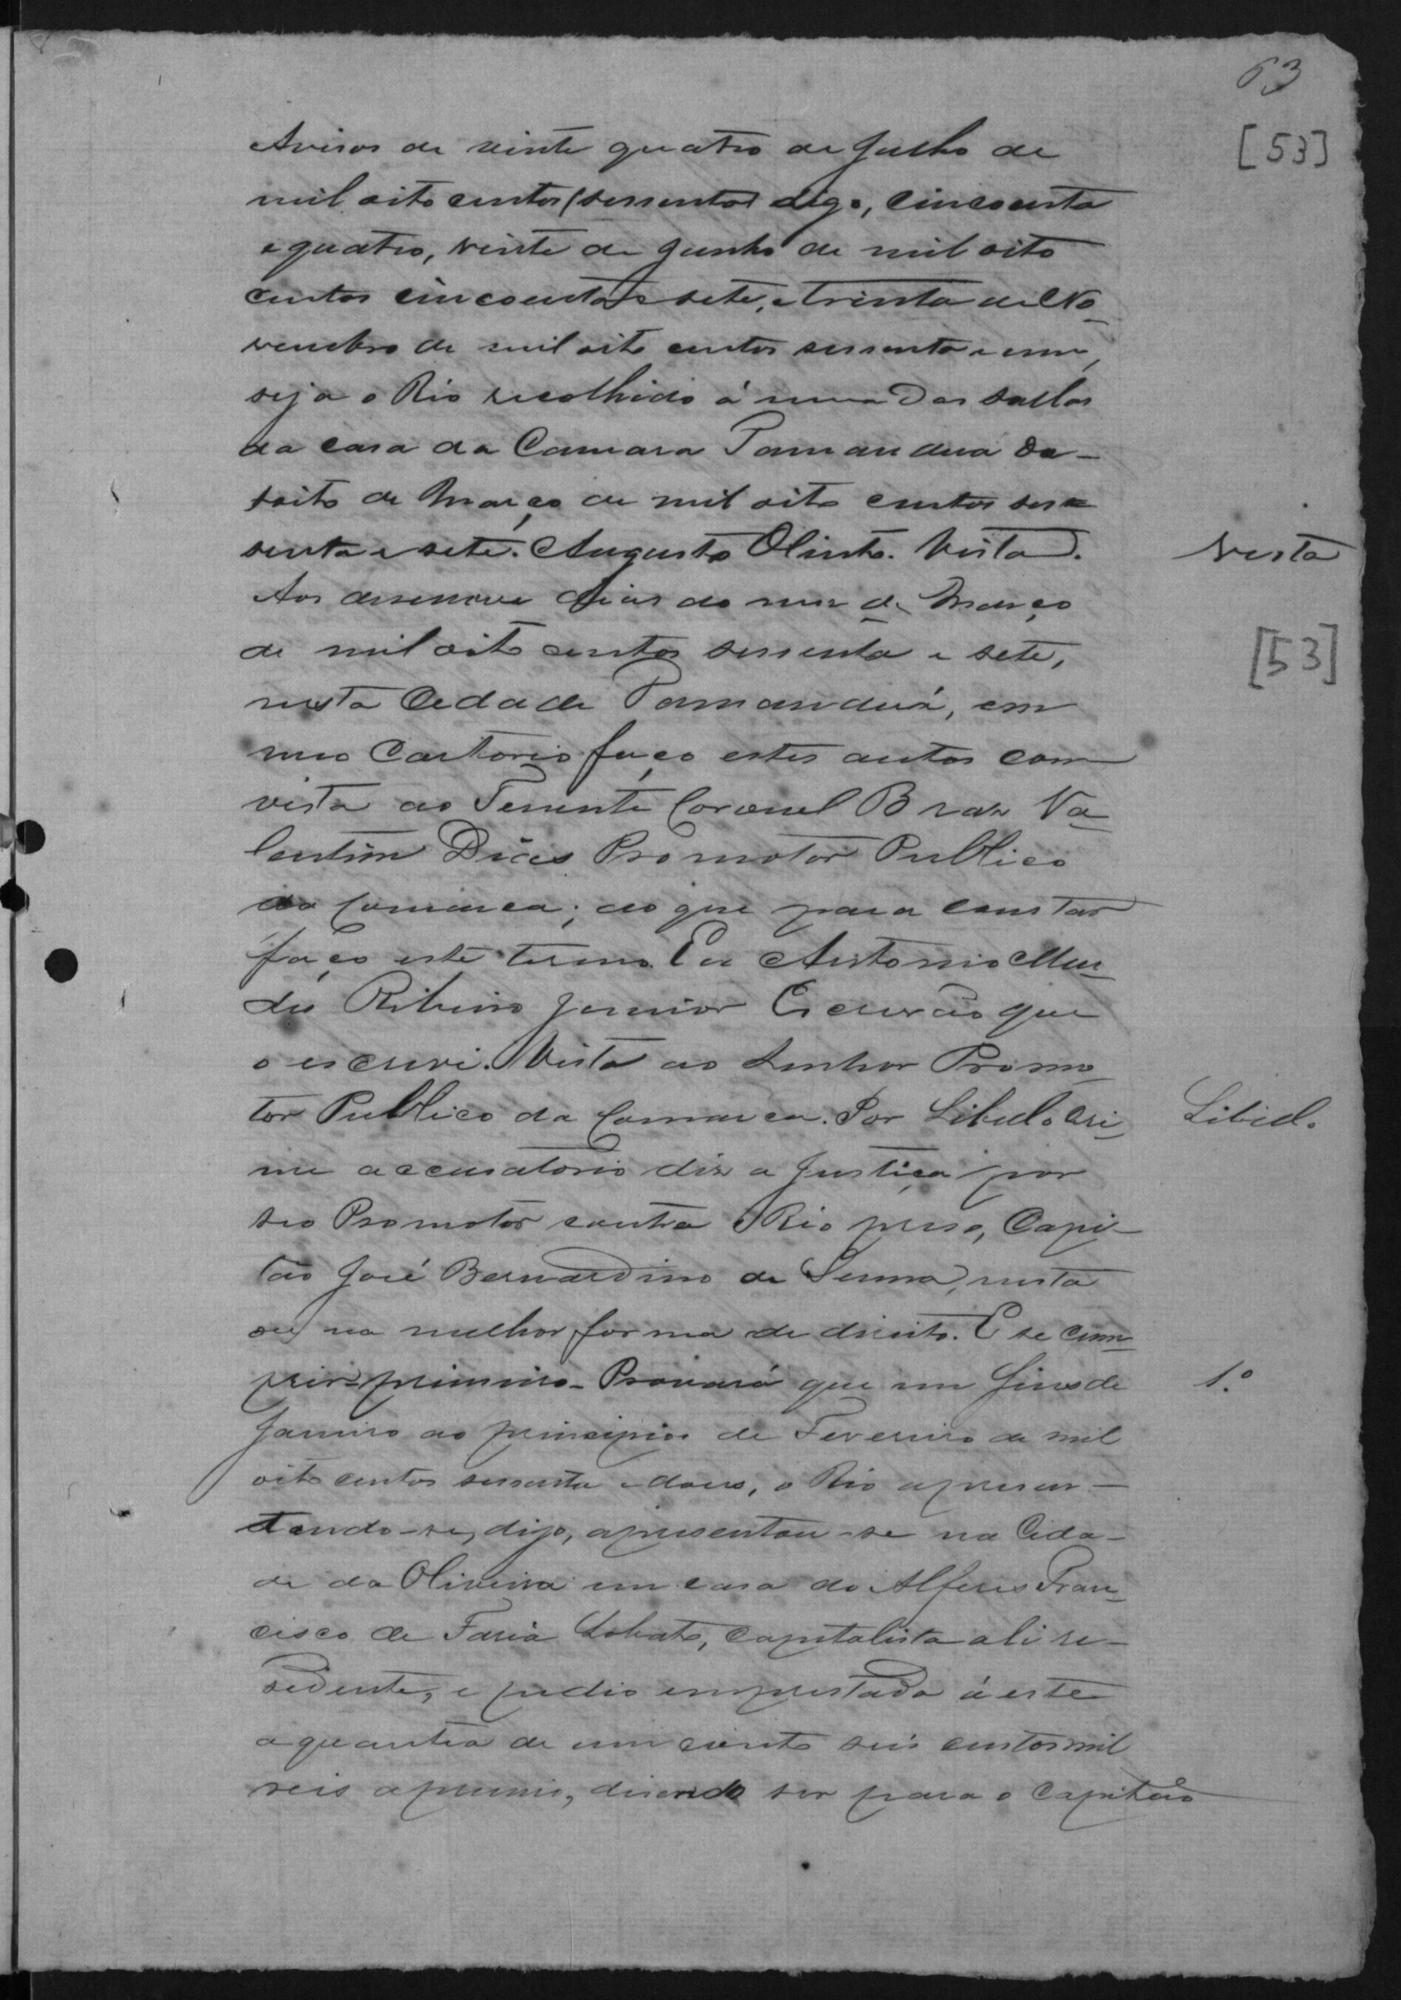 63
[53]
Avisos de vinte quatro de Julho de
mil oito centos (sessenta) digo, cincoenta
e quatro, vinte de Junho de mil oito
centos cincoenta e sete, e trinta de No-
vembro de mil oito centos sessenta e um,
seja o Réo recolhido á uma das sallas
da casa da Camara Tamanduá de-
soito de Março de mil oito centos ses-
senta e sete. Augusto Olinto. Vista.
Vista
Aos desenove dias do mez de Março
de mil oito centos sessenta e sete,
[53]
nesta Cidade Tamanduá, em
meo Cartorio faço estes autos com
vista ao Tenente Coronel Braz Va-
lentim Dias Promotor Publico
da Comarca; do que para constar
faço este termo. Eu Antonio Men-
des Ribeiro Junior Escrivão que
o escrevi. Vista ao Senhor Promo-
tor Publico da Comarca. Por Libello Cri-
Libel.
me accusatorio diz a Justiça por
seo Promotor contra o Réo preso, Capi-
tão José Bernardino de Senna, nesta
ou na melhor forma de direito. E se cum-
prir primeiro - Provará que em fins de
1.º
Janeiro ao principio de Fevereiro de mil
oito centos sessenta e dous, o Réo apresen-
tando-se, digo, apresentou-se na Cida-
de da Oliveira em casa do Alferes Fran-
cisco de Faria Lobato, capitalista ali re-
sidente, e pedio emprestado á este
a quantia de um conto seis centos mil
reis a premio, disendo ser para o Capitão